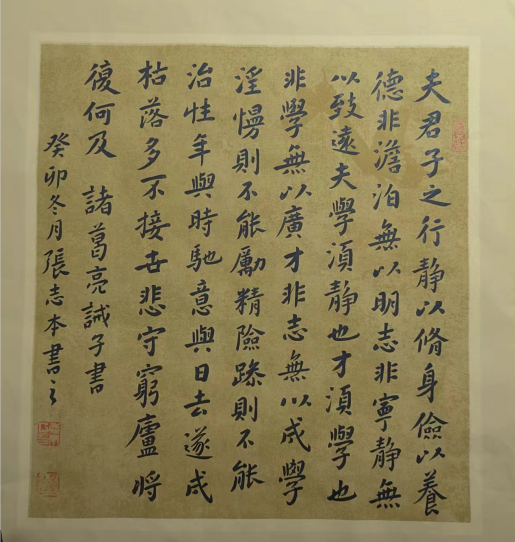 夫君子之行静以脩身儉以養
德非澹泊無以明志非寧静無
以致遠夫學須静也才須學也
非學無以廣才非志無以成學
淫慢則不能勵精險躁則不能
治性年與時馳意與日去遂成
枯落多不接世悲守窮廬將
復何及 諸葛亮誡子書
癸卯冬月張志本書之